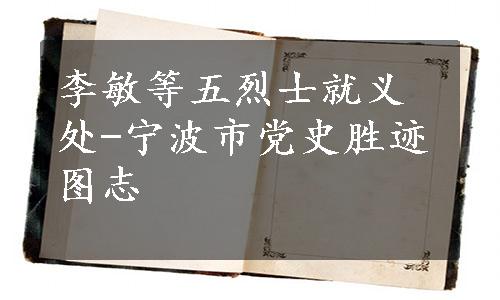 李敏等五烈士就义
处-宁波市党史胜迹
图志